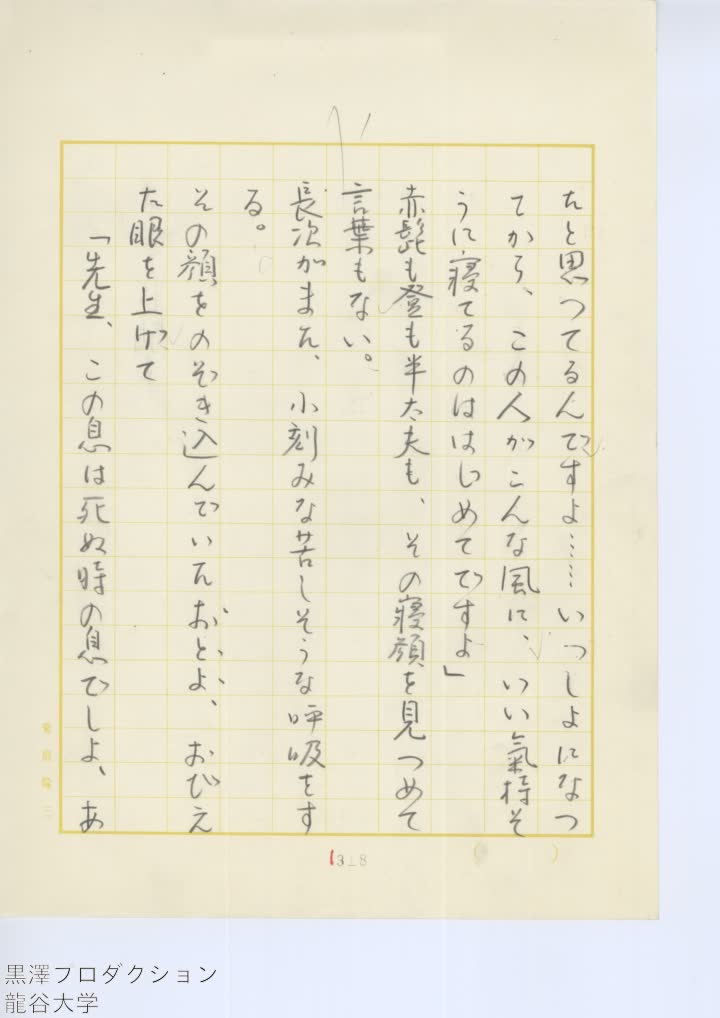 たと思つてるんですよ……いつしよになつ
てから、この人がこんな風に、いい氣持そ
うに寝てるのははじめてですよ」
赤髭も登も半太夫も、その寝顔を見つめて
言葉もない。
長次がまた、小刻みな苦しそうな呼吸をす
る。
その顔をのぞき込んでいたおとよ、おびえ
た眼を上げて
「先生、この息は死ぬ時の息でしよ、あ
318
黒澤プロダクション
龍谷大学